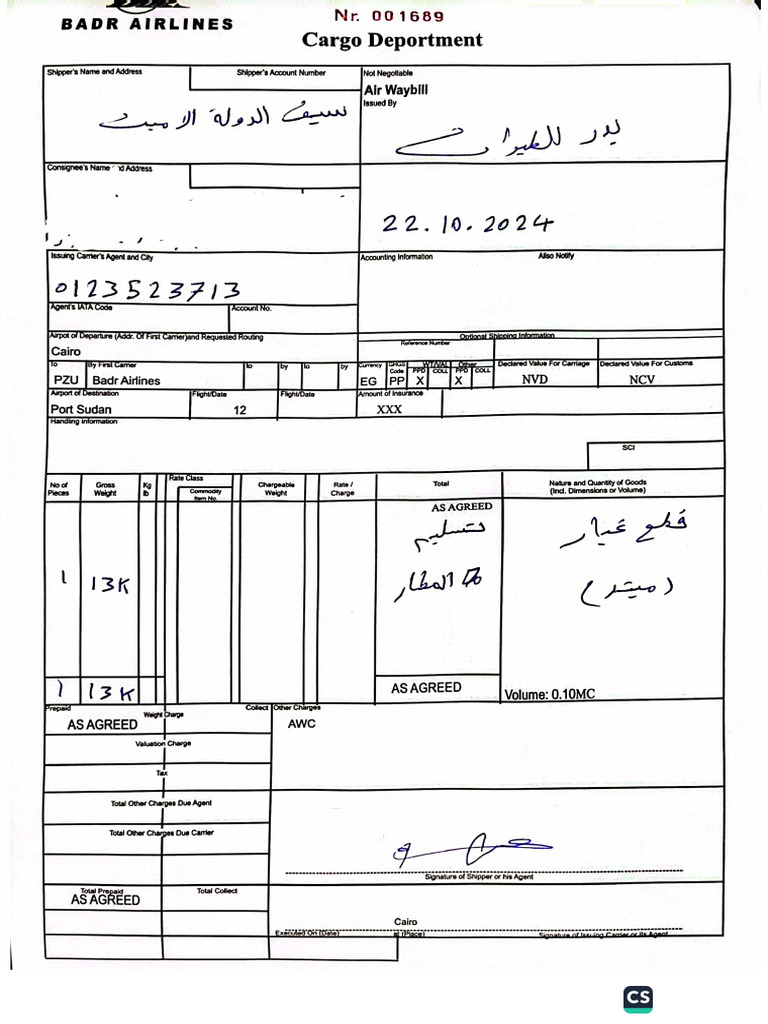 BADR AIRLINES
Nr. 001689
Cargo Deportment
Shipper's Name and Address
Shipper's Account Number
سيف الدولة الامين
Not Negotiable
Air Waybill
Issued By
بدر للطيران
Consignee's Name nd Address
22.10.2024
Issuing Carrier's Agent and City
0123523713
Accounting Information
Also Notify
Agent's IATA Code
Account No.
Airpot of Departure (Addr. Of First Carrier)and Requested Routing
Cairo
Reference Number
Optional Shipping Information
To
By First Carrier
to
by
to
by
PZU
Badr Airlines
Currency
EG
CHGS Code
PP
WT/VAL
Other
PPD
COLL
PPD
COLL
X
X
Declared Value For Carriage
NVD
Declared Value For Customs
NCV
Airport of Destination
Port Sudan
Flight/Date
12
Flight/Date
Amount of Insurance
XXX
Handling Information
SCI
No of Pieces
Gross Weight
Kg lb
Rate Class
Commodity Item No.
Chargeable Weight
Rate / Charge
Total
Nature and Quantity of Goods
(Incl. Dimensions or Volume)
AS AGREED
1
13K
تسليم
المطار
قطع غيار
1
13K
AS AGREED
Volume: 0.10MC
Prepaid
Weight Charge
Collect
AS AGREED
Other Charges
AWC
Valuation Charge
Tax
Total Other Charges Due Agent
Total Other Charges Due Carrier
Signature of Shipper or his Agent
Total Prepaid
AS AGREED
Total Collect
Cairo
Executed On (Date)
at (Place)
Signature of Issuing Carrier or Its Agent
CS